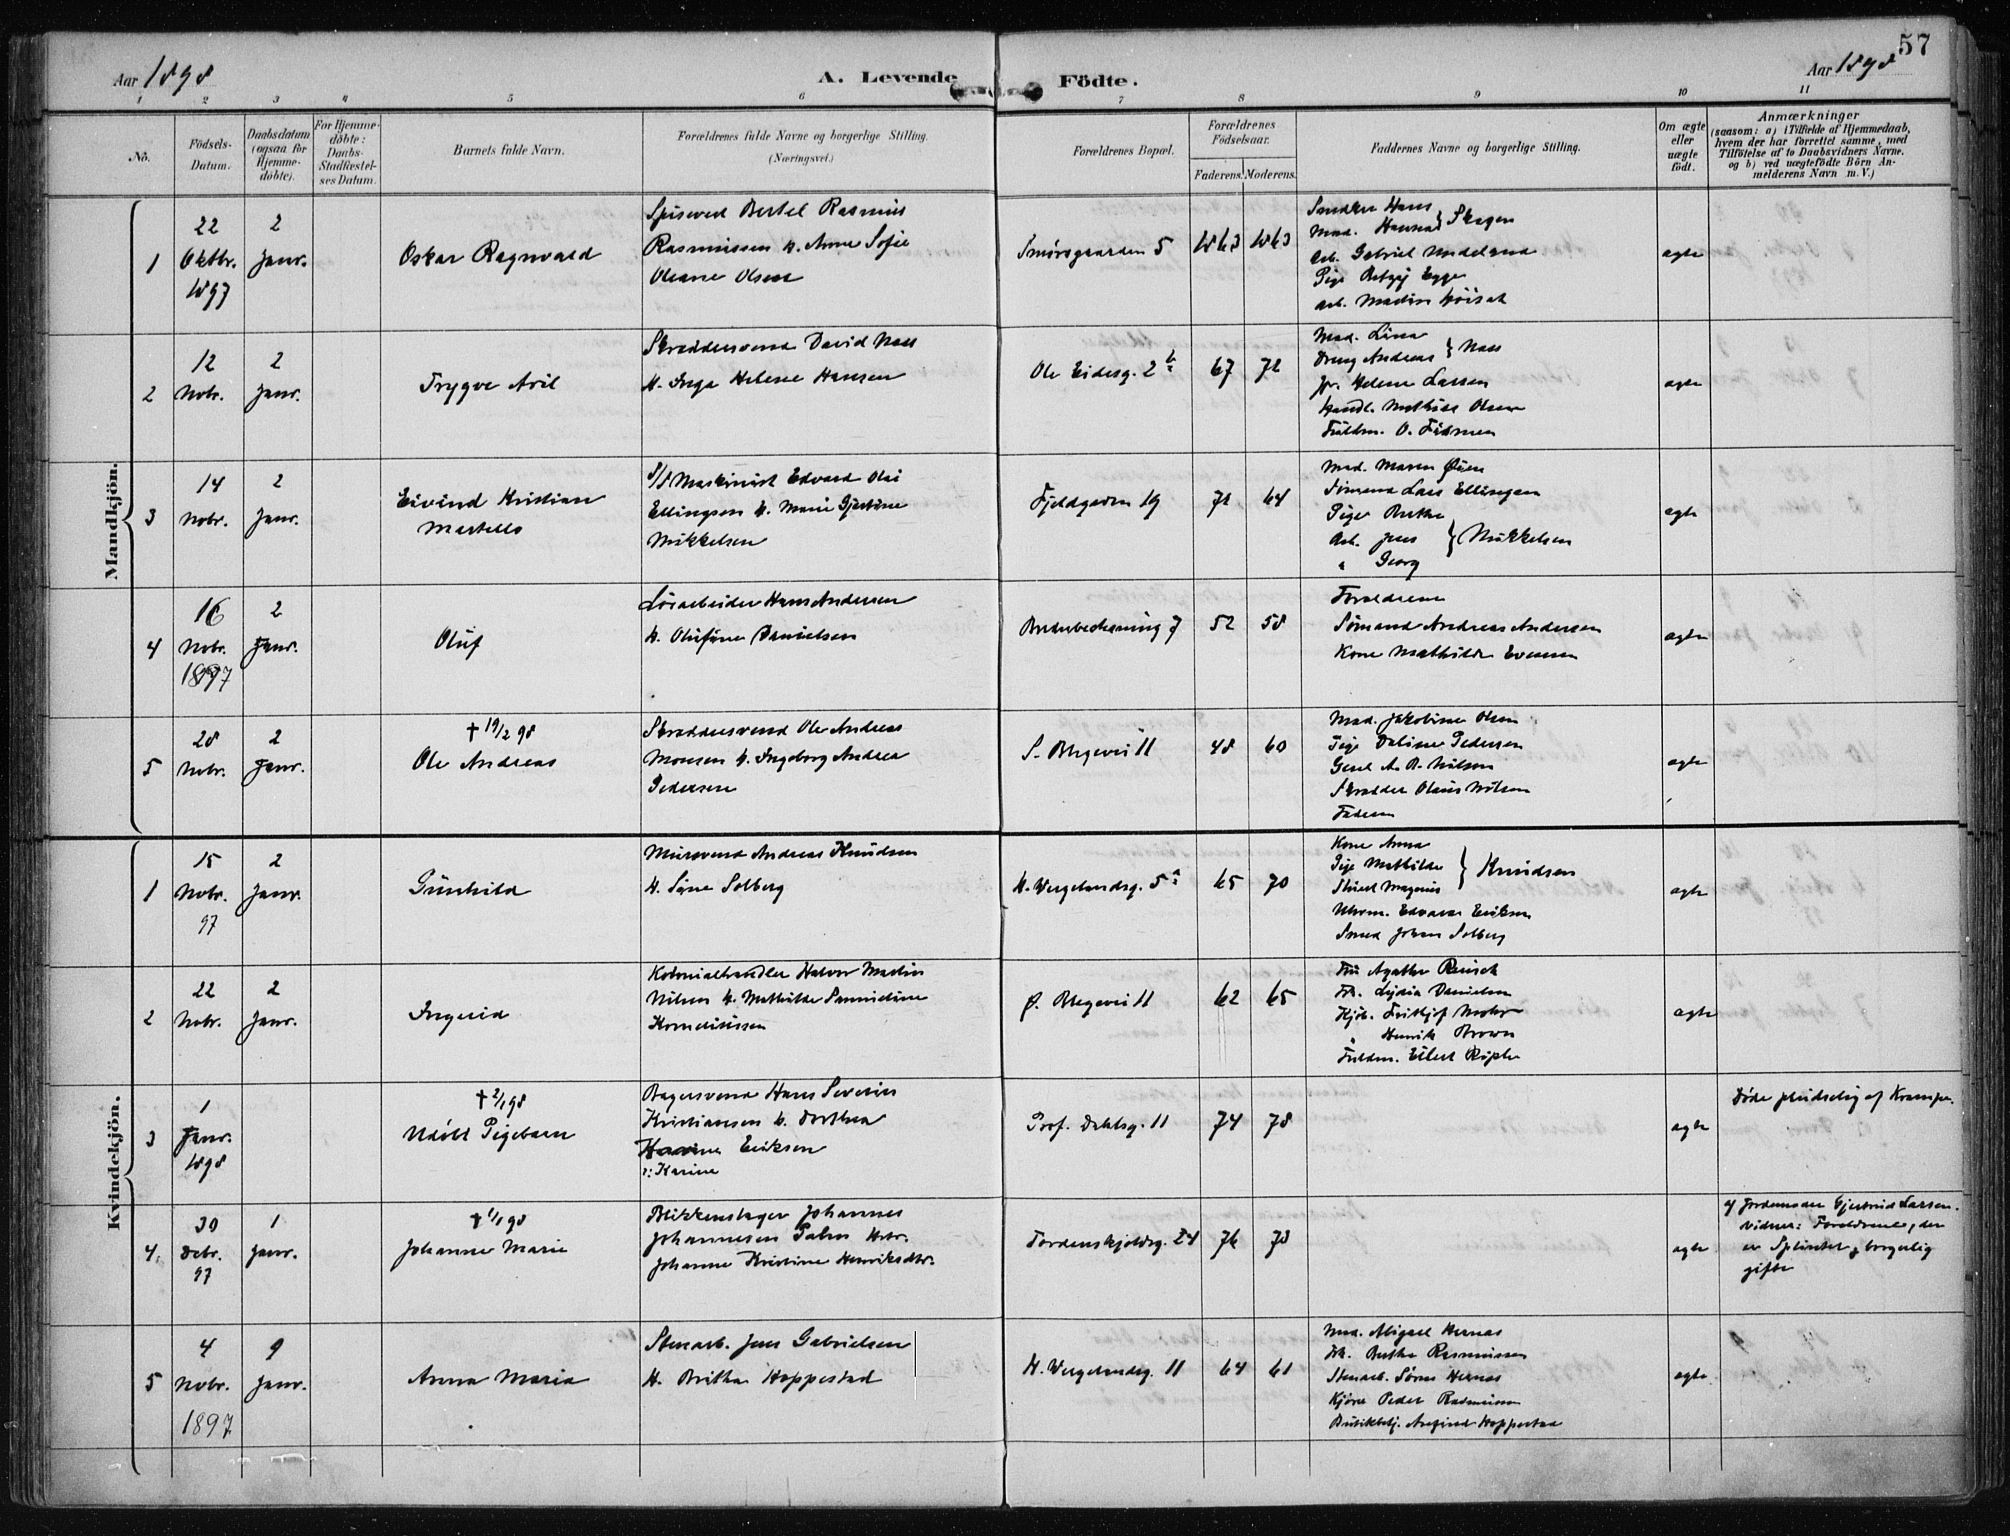 57
Aar 1898
A. Levende Födte.
Aar 1898
1 2 3 4 5 6 7 8 9 10 11
No.
Födsels-
Datum.
Daabsdatum
(ogsaa for
Hjemme-
döbte).
For Hjemme-
döbte:
Daabs-
Stadfæstel-
ses Datum.
Barnets fulde Navn.
Forældrenes fulde Navne og borgerlige Stilling.
(Næringsvei.)
Forældrenes Bopæl.
Forældrenes
Födselsaar.
Faderens. Moderens.
Faddernes Navne og borgerlige Stilling.
Om ægte
eller
uægte
født.
Anmærkninger
(saasom: a) i Tilfælde af Hjemmedaab,
hvem der har forrettet samme, med
Tilföielse af to Daabsvidners Navne.
og b) ved uægtefödte Börn An-
melderens Navn m. V.)
Mandkjön.
1
22
Oktbr.
1897
2
Janr.
Oskar Ragnvald
Bertel Rasmus
Rasmussen h. Anne Sofie
Oleane Olsen
Smørsgaarden 5
1863 1863
Snedker Hans
Mad. Hanna } Skagen
Arb. Gabriel
Pige Betzy Egge
Arb. Martin
ægte
2
12
Nobr.
2
Janr.
Trygve Aril
Skræddersvend David Næss
H. Inga Helene Hansen
Ole Eidesg. 2 b
67 72
Mad. Lina
Dreng Andreas } Næss
Jfr. Helene Larsen
Handl. Mathias Olsen
Fuldm. O.
ægte
3
14
Nobr.
2
Janr.
Eivind Kristian
Martello
S/S Maskinist Edvard Olai
Ellingsen h. Marie Gjertine
Mikkelsen
Fjeldgaden 19
71 64
Mad. Maren
Sømand Lars Ellingsen
Pige Berthe
Arb. Jens } Mikkelsen
" Georg
ægte
4
16
Nobr.
1897
2
Janr.
Oluf
Løsarbeider Hans Andersen
h. Olufine Danielsen
7
52 58
Forældrene
Sømand Andreas Andersen
Kone Mathilde Evensen
ægte
5
28
Nobr.
2
Janr.
† 19/2 98
Ole Andreas
Skræddersvend Ole Andreas
Monsen h. Ingeborg Andrea
Pedersen
S. Blegevei 11
48 60
Mad. Jakobine Olsen
Pige Daline Pedersen
Gesel A. B. Nilsen
Skrædder Olaus Nilsen
Faderen
ægte
Kvindekjön.
1
15
Nobr.
97
2
Janr.
Gunhild
Mursvend Andreas Knudsen
H. Sine Solberg
H. Wergelandsg. 5 a
65 70
Kone Anna
Pige Mathilde
Magnus } Knudsen
Uhrm. Edvard Eriksen
Smed Johan Solberg
ægte
2
22
Nobr.
2
Janr.
Ingerid
Kolonialhandler Halvor Martin
Nilsen h. Mathilde
Korneliussen
Ø. Blegevei 11
62 65
Fru Agathe Reusch
Frk. Lydia Danielsen
Kjøb. Frithjof Mohr
" Henrik Brown
Fuldm. Eilert
ægte
3
1
Janr.
1898
† 2/1 98
Udøbt Pigebarn
Bagersvend Hans Severin
Kristiansen h. Dorthea
Eriksen
ɔ: Karine
Prof. Dahlsg. 11
74 78
ægte
Døde pludselig af Krampe.
4.
30
Debr.
97
1
Janr.
† 1/1 98
Johanne Marie
Blikkenslager Johannes
Johannesen Palm Hstr.
Johanne Kristine Henriksdtr.
Tordenskjoldsg. 24
76 78
ægte
af Jordemoder Gjertrud Larsen.
Vidner: Forældrene, der
er borgerlig
gifte
5
4
Nobr.
1897
9
Janr.
Anna Maria
Stenarb. Jens Gabrielsen
H. Britha Hoppestad
H. Wergelandsg. 11
64 61
Mad. Abigael Hernæs
Frk. Berthe Rasmussen
Stenarb. Søren Hernæs
Kjører Peder Rasmussen
Butikbetj. Hoppestad
ægte